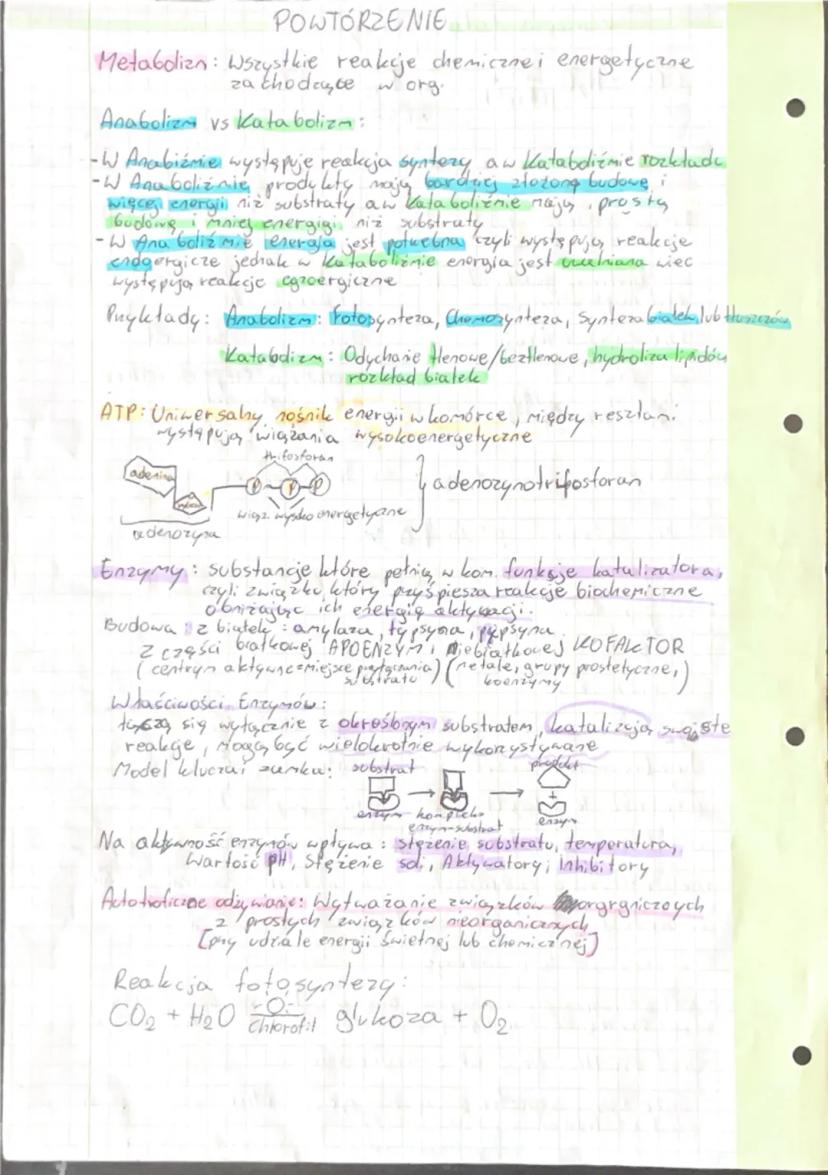 POWTÓRZENIE
Metabolizm: Wszystkie reakcje chemiczne i energetyczne
zachodzące w org.
Anabolizm vs Katabolizm:
- W Anabiźmie występuje reakcja syntezy a w Kataboliźmie rozkładu
- W Anaboliźmie produkty mają bardziej złożoną budowę i
więcej energii niż substraty a w Kataboliźmie mają prostą
budowę i mniej energigi niż substraty
- W Anaboliźmie energia jest potrzebna czyli występują reakcje
endoergicze jednak w Kataboliźmie energia jest uwalniana wiec
występują reakcje egzoergiczne
Przykłady: Anabolizm: Fotosynteza, Chemosynteza, Synteza białek lub tłuszczów
Katabolizm: Odychanie tlenowe/beztlenowe, hydroliza lipidów
rozkład białek
ATP: Uniwersalny nośnik energii w komórce, między resztami
występują wiązania wysokoenergetyczne
trifosforan
adenina
P P P
adenozynotrifosforan
wiąz. wysoko energetyczne
adenozyna
Enzymy: substancje które pełnią w kom. funkcje katalizatora,
czyli związku który przyśpiesza reakcje biochemiczne
obniżając ich energię aktywacji.
Budowa: z białek: amylaza, typsyna, pypsyna
z części białkowej APOENZYM i niebiałkowej KOFAKTOR
(centrum aktywne=miejsce przyłączania substratu) (metale, grupy prostetyczne, koenzymy)
Właściwości Enzymów:
łączą się wyłącznie z określonym substratem, katalizują swoiste
reakcje, mogą być wielokrotnie wykorzystywane
Model klucza i zamka: substrat produkt
+
enzym kompleks enzym-substrat enzym
Na aktywność enzymów wpływa: stężenie substratu, temperatura,
Wartość pH, Stężenie soli, Aktywatory i Inhibitory
Autotroficzne odżywianie: Wytważanie związków orgrgniczych
z prostych związków nieorganicznych
[przy udziale energii świetnej lub chemicznej]
Reakcja fotosyntezy:
CO2 + H2O chlorofil glukoza + O2